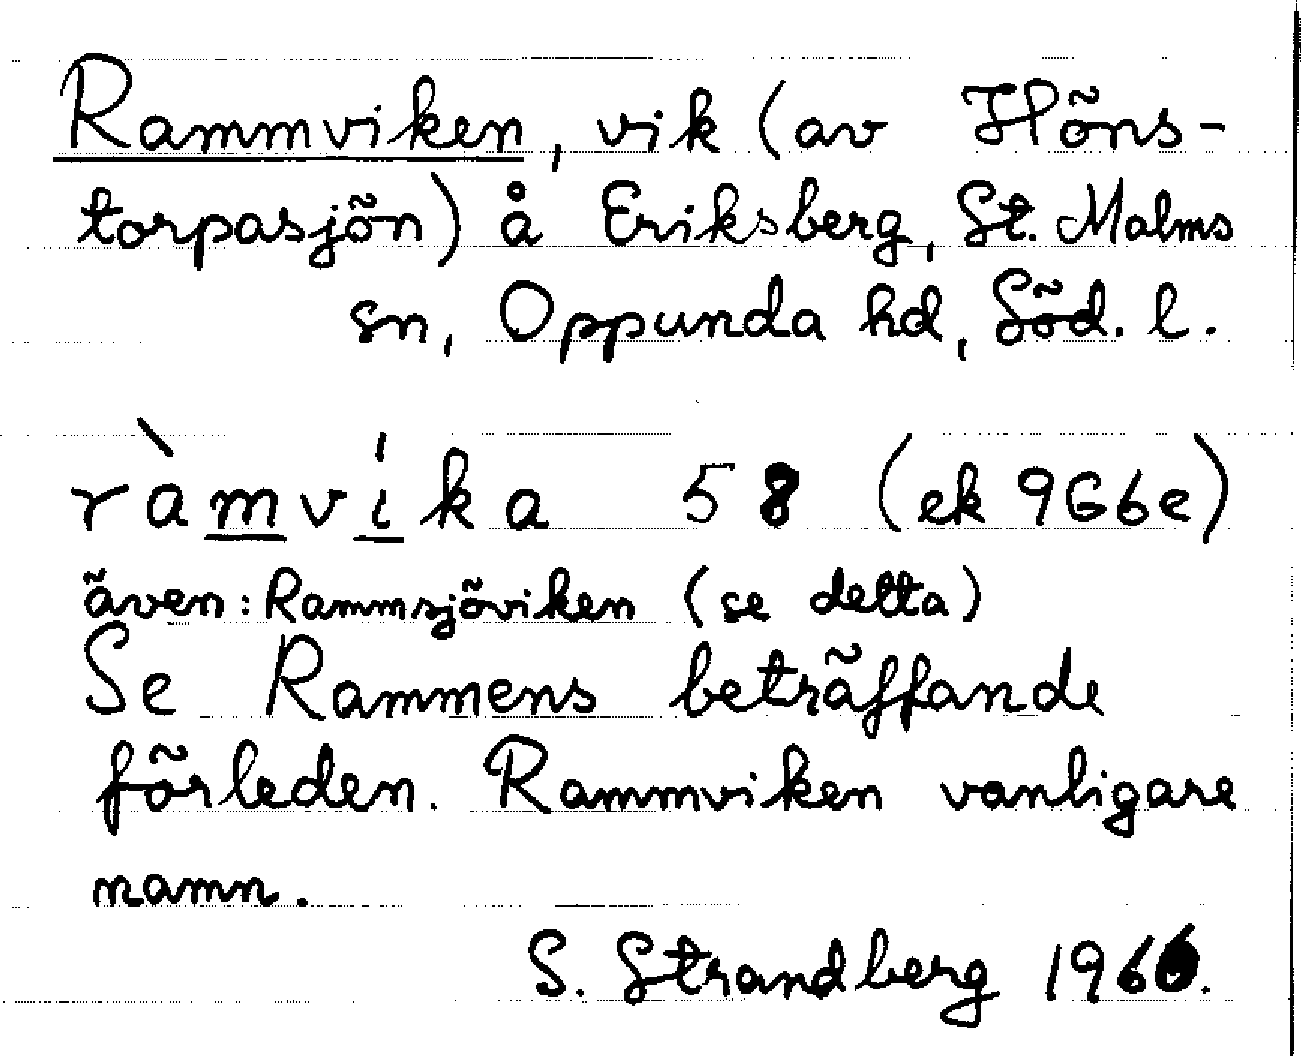 Rammviken, vik (av Höns-
torpasjön) å Eriksberg, St. Malms
sn, Oppunda hd, Söd. l.
ràmvíka 58 (ek 9G6e)
även: Rammsjöviken (se detta)
Se Rammens beträffande
förleden. Rammviken vanligare
namn.
S. Strandberg 1966.